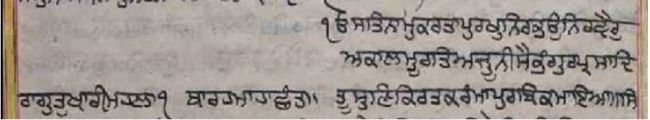 ੧ਓ ਸਤਿਨਾਮੁਕਰਤਾਪੁਰਖੁਨਿਰਭਉਨਿਰਵੈਰੁ
ਅਕਾਲਮੂਰਤਿਅਜੂਨੀਸੈਭੰਗੁਰਪ੍ਰਸਾਦਿ
ਰਾਗੁਤੁਖਾਰੀਮਹਲਾ੧ ਬਾਰਹਮਾਹਾਛੰਤ। ਤੂਸੁਣਿਕਿਰਤਕਰੰਮਾਪੁਰਬਿਕਮਾਇਆ॥ਸਿ